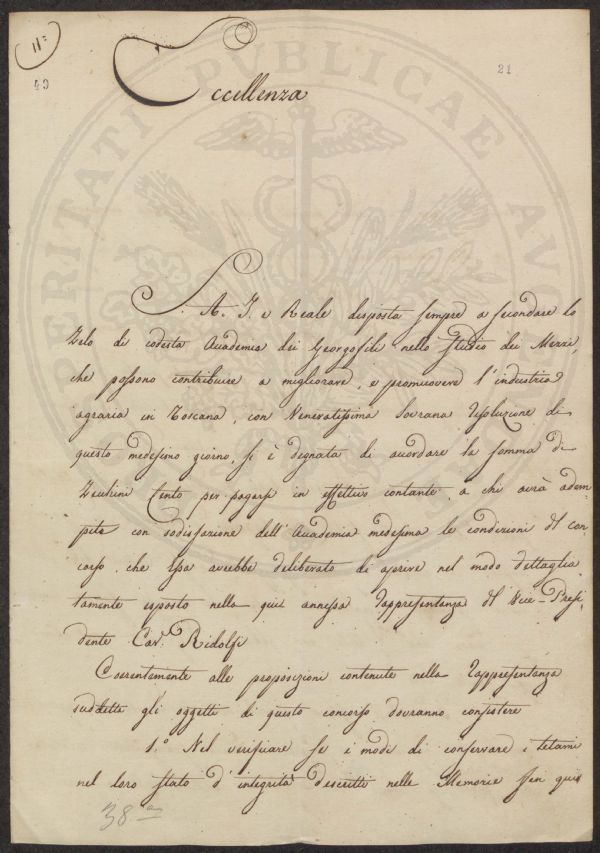 11º
49
21
Eccellenza
S. A. I. e Reale disposta sempre a secondare lo
Zelo di codesta Accademia dei Georgofili nello studio dei Mezzi,
che possono contribuire a migliorare, e promuovere l'industria
agraria in Toscana, con Veneratissima Sovrana Resoluzione di
questo medesimo giorno, si è degnata di accordare la somma di
Zecchini Cento per pagarsi in effettivo contante, a chi avrà adem-
pito con sodisfazione dell'Accademia medesima le condizioni del con-
corso, che Essa avrebbe deliberato di aprire nel modo dettaglia-
tamente esposto nella qui annessa Rappresentanza del Vice-Presi-
dente Cav. Ridolfi
Coerentemente alle proposizioni contenute nella Rappresentanza
suddetta gli oggetti di questo concorso dovranno consistere
1.º Nel verificare se i modi di conservare i letami
nel loro stato d'integrità descritti nelle Memorie fin qui
38
PUBLICAE